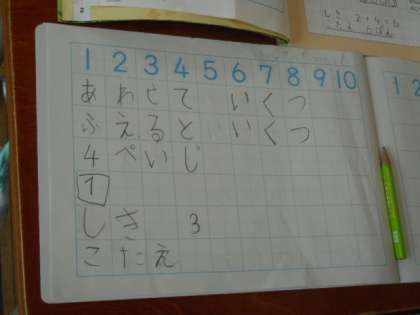 1 2 3 4 5 6 7 8 9 10
あわせて いくつ
ふえると いくつ
4ぺいじ
1
しき 3
こたえ
1 2